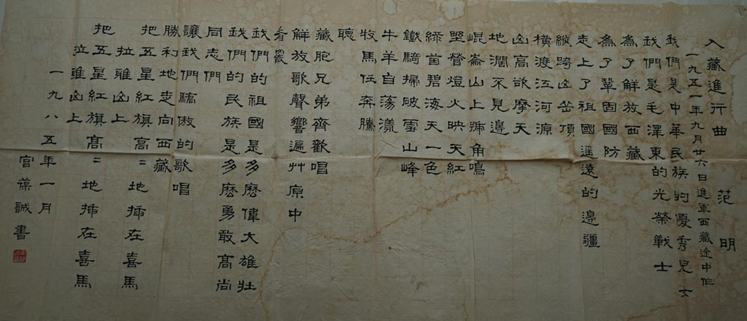 入藏進行曲 范明
一九五一年九月廿六日進軍西藏途中作
我們是中華民族的優秀兒女
我們是毛澤東的光榮戰士
為了解放西藏
為了鞏固國防
走上了祖國遙遠的邊疆
縱跨山岳頂
橫渡江河源
山高欲摩天
地濶不見邊
崐崙山上號角鳴
野營燈火映天紅
綠茵碧海天一色
鐵騎掃破雪山峰
牛羊自蕩漾
牧馬任奔騰
聽
藏胞兄弟齊歡唱
解放歌聲響遍艸原中
看
我們的祖國是多麼偉大雄壯
我們的民族是多麼勇敢高尚
同志們
讓我們驕傲的歌唱
勝利地走向西藏
把五星紅旗高〻地插在喜馬
拉雅山上
把五星紅旗高〻地插在喜馬
拉雅山上
一九八五年一月
官葆誠書